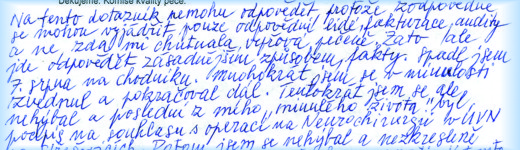 Děkujeme. Komise kvality péče.
Na tento dotazník nemohu odpovědět protože zodpovědně
se mohou vyjádřit pouze odpovědní lidé, fakturace, audity
a ne, zda mi chutnala vepřová pečeně. Zato lze
jde odpovědět zásadnějším způsobem, fakty. Spadl jsem
7. srpna na chodníku. Mnohokrát jsem se v minulosti
zvednul a pokračoval dál. Tentokrát jsem se ale
nehýbal a poslední z mého "minulého života" byl
podpis na souhlasu s operací na Neurochirurgii v ÚVN
Potom jsem se nehýbal a nezkresleně